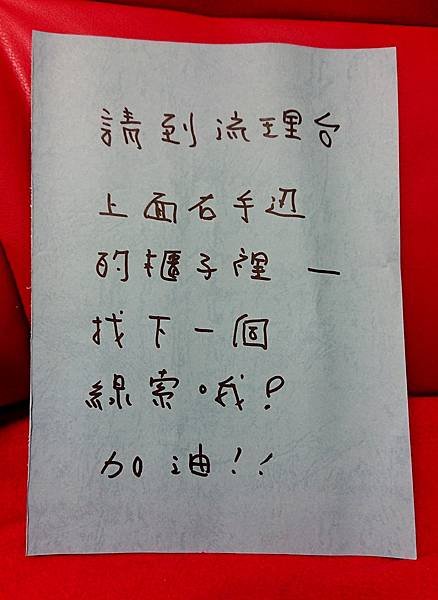 請到流理台
上面右手边
的櫃子裡一
找下一個
線索哦?
加油!!